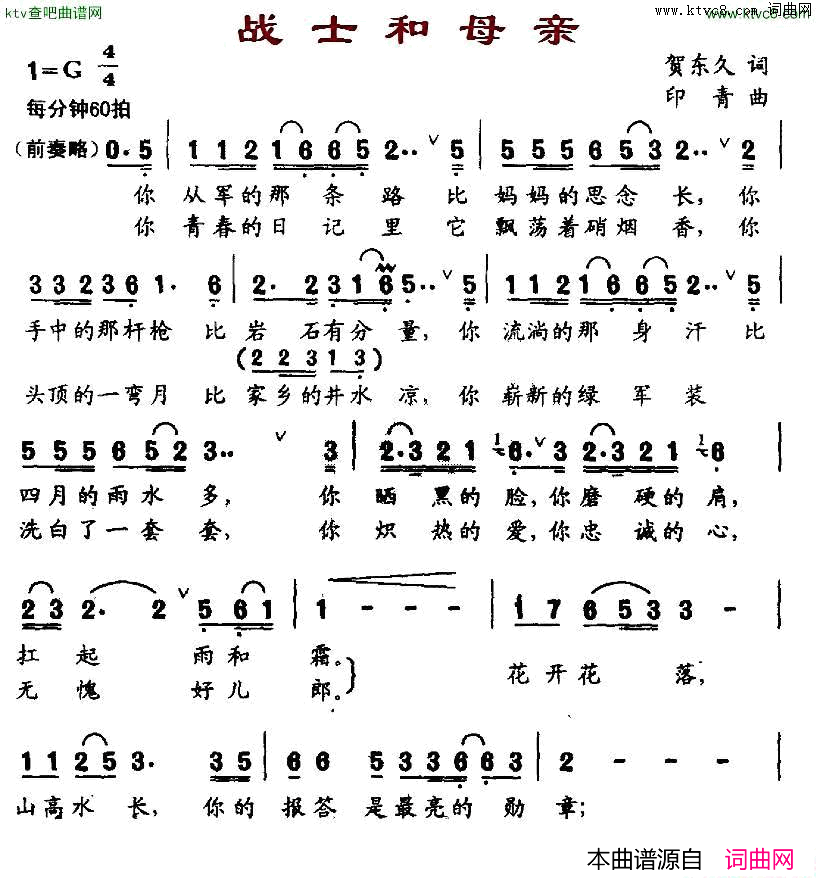 ktv查吧曲谱网
www.ktvc8.com 词曲网
www.ktvc8.com
战士和母亲
1=G 4/4
贺东久 词
每分钟60拍
印 青 曲
(前奏略) 0. 5 | 1 1 2 1 6 6 5 2.. ∨ 5 | 5 5 5 6 5 3 2.. ∨ 2 |
你 从军的那 条 路 比 妈妈的思念 长, 你
你 青春的日 记 里 它 飘荡着硝烟 香, 你
3 3 2 3 6 1. 6 | 2. 2 3 1 6 5.. ∨ 5 | 1 1 2 1 6 6 5 2.. ∨ 5 |
手中的那杆枪 比 岩 石有分 量, 你 流淌的那 身 汗 比
(2 2 3 1 3)
头顶的一弯月 比 家乡的井水 凉, 你 崭新的绿 军 装
5 5 5 6 5 2 3.. ∨ 3 | 2. 3 2 1 1 6. ∨ 3 2. 3 2 1 1 6 |
四月的雨水 多, 你 晒 黑的 脸, 你磨 硬的 肩,
洗白了一套 套, 你 炽 热的 爱, 你忠 诚的 心,
2 3 2. 2 ∨ 5 6 1 | 1 - - - | 1 7 6 5 3 3 - |
扛 起 雨和 霜。
花开花 落,
无 愧 好儿 郎。
1 1 2 5 3. 3 5 | 6 6 5 3 3 6 6 3 | 2 - - - |
山高水 长, 你的 报答 是最亮的 勋 章;
本曲谱源自 词曲网